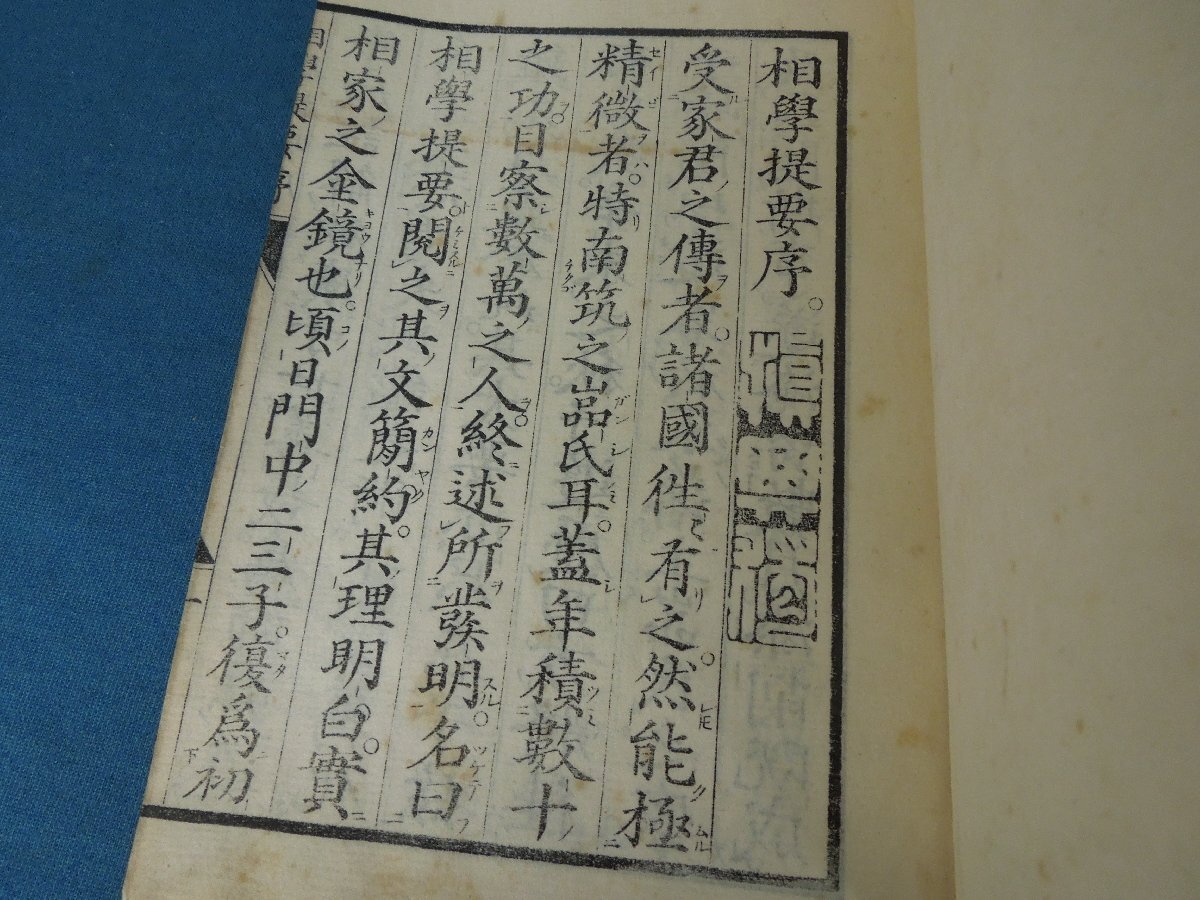 相學提要序。
受家君之傳者。諸國徃〻有之。然能極
精微者。特南筑之嵓氏耳。蓋年積數十
之功。目察數萬之人。終述所發明。名曰
相學提要。閱之其文簡約。其理明白。實
相家之金鏡也。頃日門中二三子。復爲初
相學提要序
一